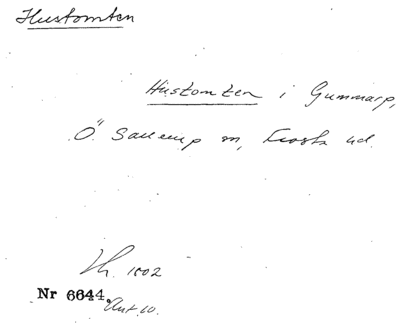 Hustomten
Hustomten i Gummarp,
Ö. Sallerup sn, Frosta hd.
1802
Nr 6644.